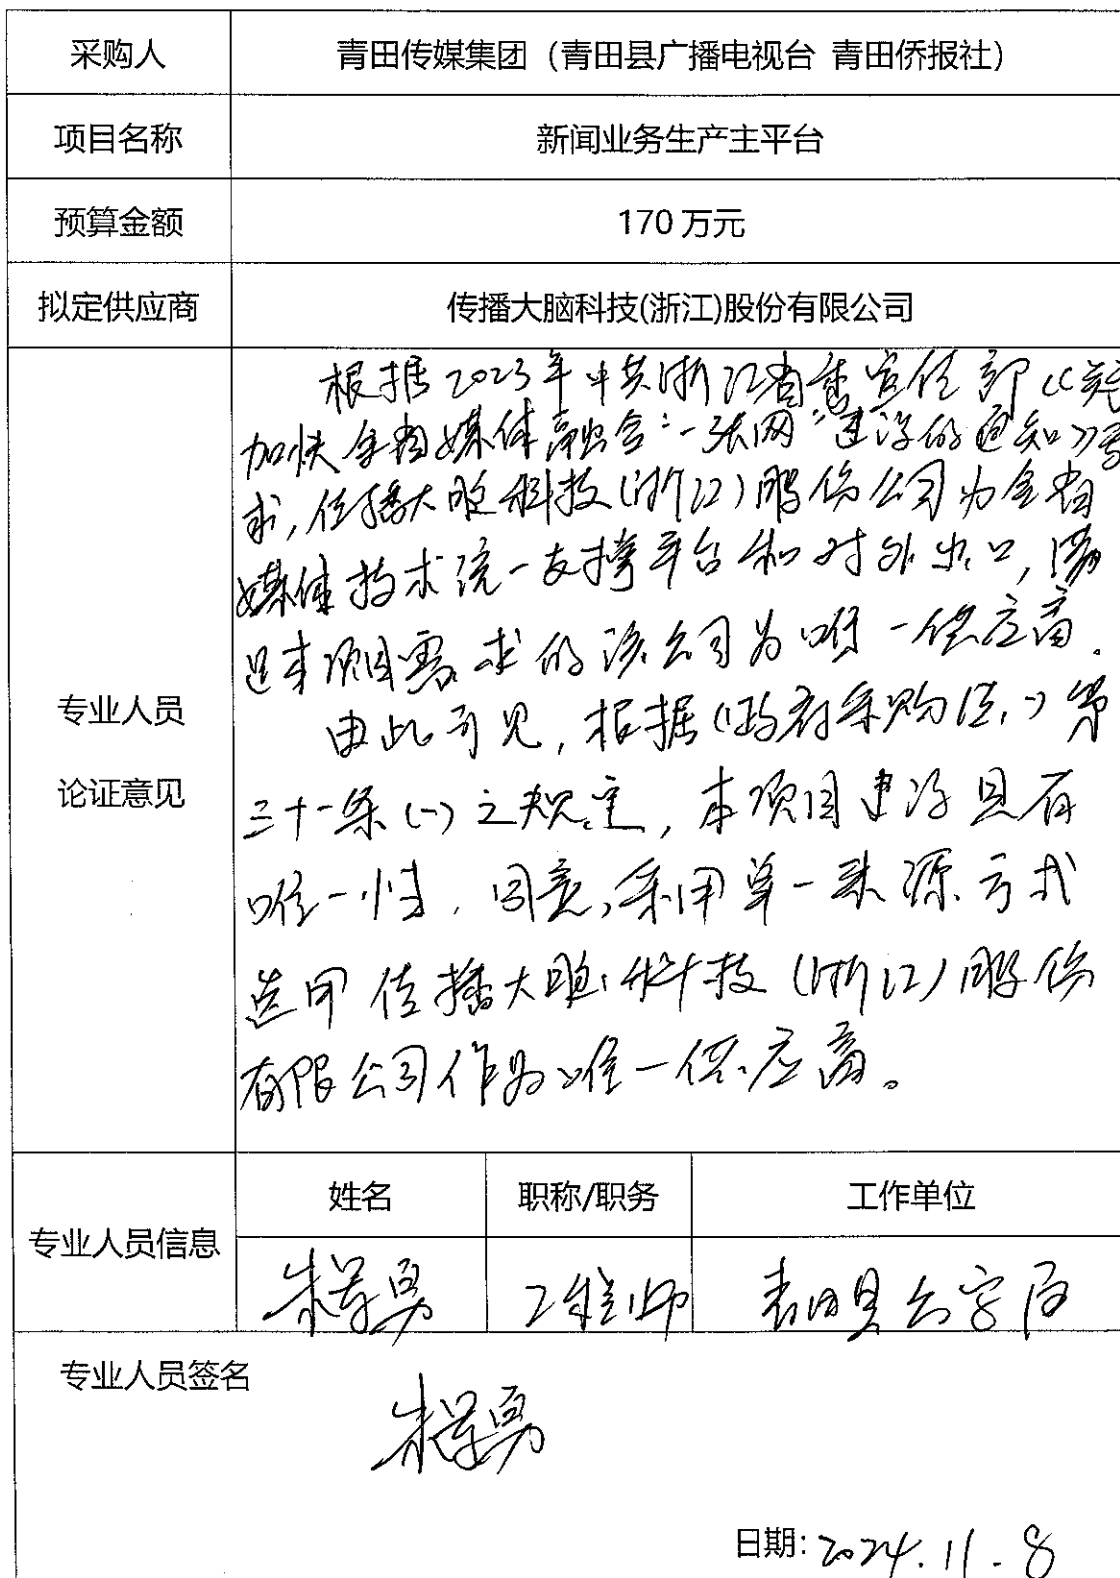 采购人 青田传媒集团（青田县广播电视台 青田侨报社）
项目名称 新闻业务生产主平台
预算金额 170 万元
拟定供应商 传播大脑科技(浙江)股份有限公司
根据2023年中共浙江省委宣传部《关于
加快全省媒体融合“一张网”建设的通知》需
求,传播大脑科技(浙江)股份公司为全省
媒体技术统一支撑平台和对外出口,满
足本项目需求的该公司为唯一供应商.
专业人员
论证意见
由此可见,根据《政府采购法》第
三十一条(一)之规定,本项目建设具有
唯一性,同意采用单一来源方式
选用传播大脑科技(浙江)股份
有限公司作为唯一供应商。
专业人员信息
姓名 职称/职务 工作单位
朱 勇 工程师 青田县公安局
专业人员签名
朱 勇
日期: 2024.11.8